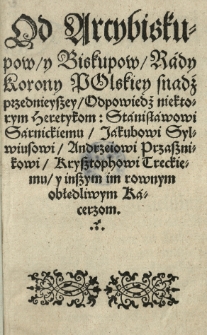 Od Arcybisku-
pow/ y Biskupow/ Rády
Korony POlskiey snadź
przednieyszey/ Odpowiedź niekto-
rym Heretykom: Stánisłáwowi
Sárnickiemu/ Jákubowi Syl-
wiusowi/ Andrzeiowi Prząśni-
kowi/ Krysztophowi Treckie-
mu/ y inszym im rownym
obłedliwym Ká-
cerzom.